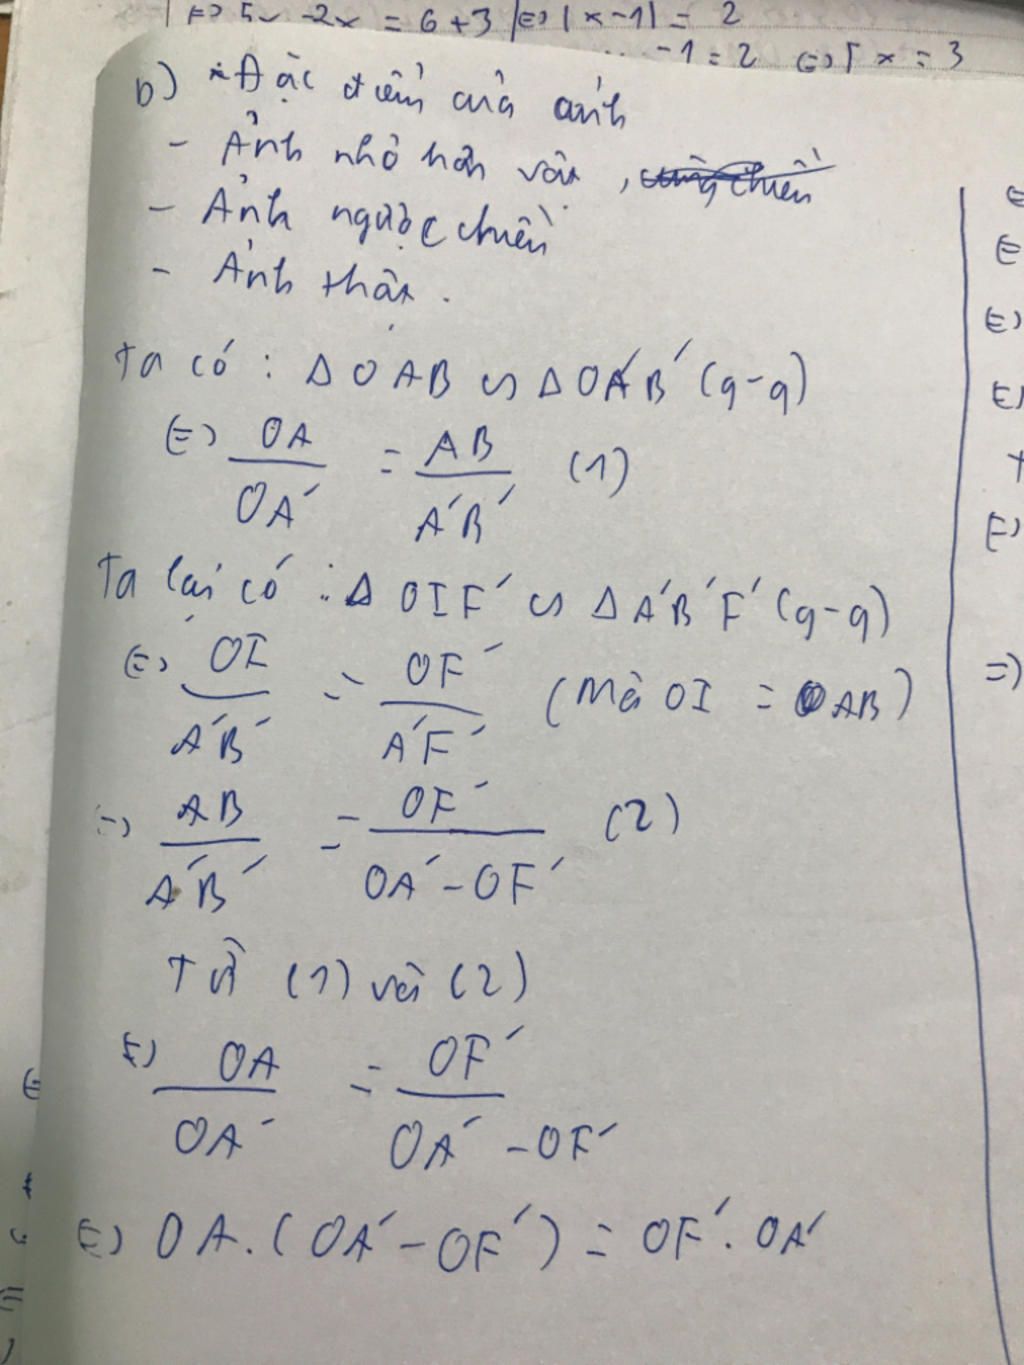 ⇔ 5x - 2x = 6 + 3 | ⇔ |x - 1| = 2
-1 = 2 ⇔ [ x = 3
b) * Đặc điểm của ảnh
- Ảnh nhỏ hơn vật,
- Ảnh ngược chiều
- Ảnh thật.
Ta có : Δ OAB ∽ Δ OA'B' (g-g)
⇔ OA/OA' = AB/A'B' (1)
Ta lại có : Δ OIF' ∽ Δ A'B'F' (g-g)
⇔ OI/A'B' = OF'/A'F' (Mà OI = AB)
⇒ AB/A'B' = OF'/OA' - OF' (2)
Từ (1) và (2)
⇔ OA/OA' = OF'/OA' - OF'
⇔ OA.(OA' - OF') = OF'. OA'